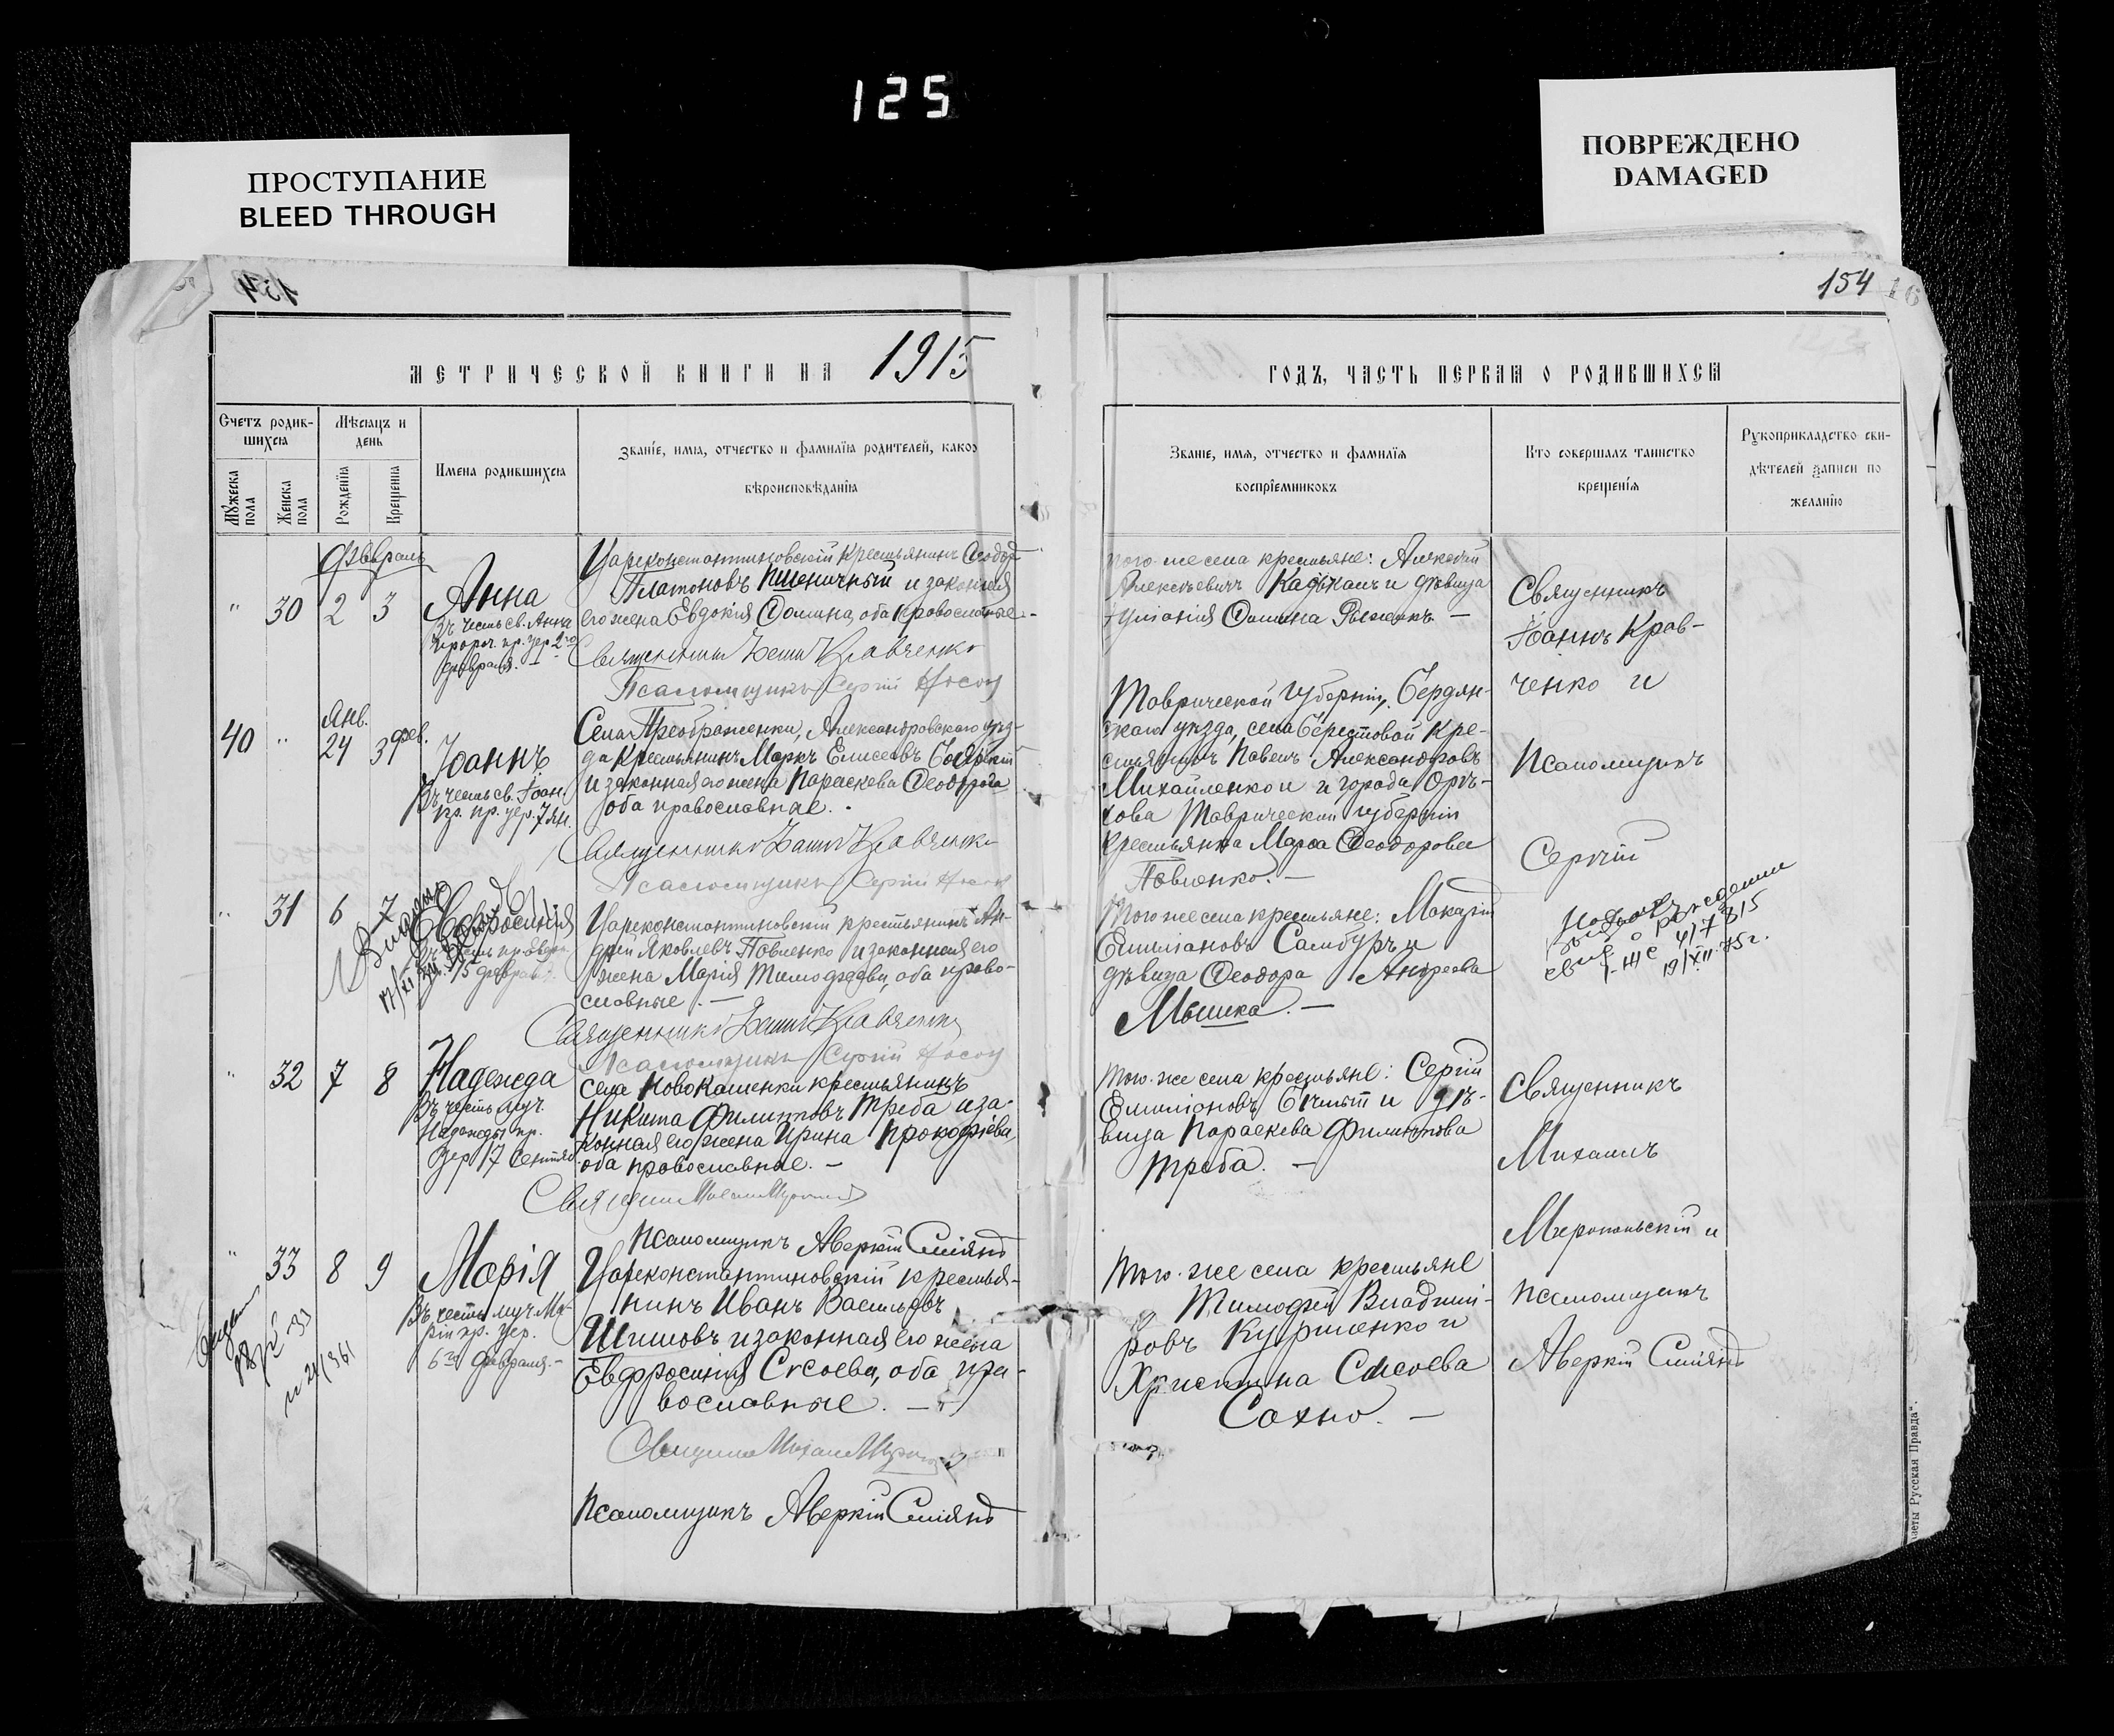 125
ПРОСТУПАНИЕ
BLEED THROUGH
ПОВРЕЖДЕНО
DAMAGED
154
МЕТРИЧЕСКОЙ КНИГИ НА 1915
ГОДЪ, ЧАСТЬ ПЕРВАЯ О РОДИВШИХСЯ
Счетъ родив-
шихся
Мѣсяцъ и
день
Мужеска
пола
Женска
пола
Рожденія
Крещенія
Имена родившихся
Званіе, имя, отчество и фамилія родителей, какого
вѣроисповѣданія
Званіе, имя, отчество и фамилія
воспріемниковъ
Кто совершалъ таинство
крещенія
Рукоприкладство сви-
дѣтелей записи по
желанію
Февраль
" 30 2 3
Анна
Въ честь св. Анны
прор. пр. цер. 2го
февраля. –
Цареконстантиновскій крестьянинъ Ѳеодор
Платоновъ Пшеничный и законная
его жена Евдокія Ѳомина, оба православные –
Священникъ Іоаннъ Кравченко
Псаломщикъ Сергій Носов
того-же села крестьяне: Алексій
Алексѣевичъ и дѣвица
Ѳомина –
Священникъ
Іоаннъ Крав-
ченко и
Псаломщикъ
Сергій
40 "
Янв.
24 3 фев.
Іоаннъ
Въ честь св. Іоан.
пр. пр. цер. 7 ян.
Села Преображенки, Александровскаго уѣз-
да крестьянинъ Маркъ Елисеевъ
и законная его жена Параскева Ѳеодорова
оба православные. -
Священникъ Іоаннъ Кравченко
Псаломщикъ Сергій Носов
Таврической губерніи, Бердян-
скаго уѣзда, села Берестовой кре-
стьянинъ Павелъ Александровъ
Михайленко и города Орѣ-
хова Таврической губерніи
крестьянка Марѳа Ѳеодорова
Павленко. –
" 31 6 7
Евфросинія
Цареконстантиновскій крестьянинъ Ан-
дрей Яковлевъ Павленко и законная его
жена Марія Тимофеева, оба право-
славные. –
Священникъ Іоаннъ Кравченко
Псаломщикъ Сергій Носов
Того же села крестьяне: Макарій
Емиліановъ Самбуръ и
дѣвица Ѳеодора Андреева
Мышка. –
о рождении
19/XII-75 г.
" 32 7 8
Надежда
Въ честь муч.
Надежды пр.
цер 17 Сентяб.
села Новокаменки крестьянинъ
Никита Филипповъ Треба и за-
конная его жена Ирина Прокофіева
оба православные. –
Псаломщикъ Аверкій Сміянъ
того-же села крестьяне: Сергій
Емиліановъ и дѣ-
вица Параскева Филиппова
Треба. –
Священникъ
Михаилъ
Миропольскій и
псаломщикъ
Аверкій Сміянъ
" 33 8 9
Марія
Въ честь муч. Ма-
ріи пр. цер.
6го февраля. –
Цареконстантиновскій крестья-
нинъ Иванъ Васильевъ
Шишовъ и законная его жена
Евфросинія Сысоева, оба пра-
вославные. –
Псаломщикъ Аверкій Сміянъ
того-же села крестьяне
Тимофей Владимі-
ровъ Курпиленко и
Христина Сысоева
Сахно. –
газеты Русская Правда".